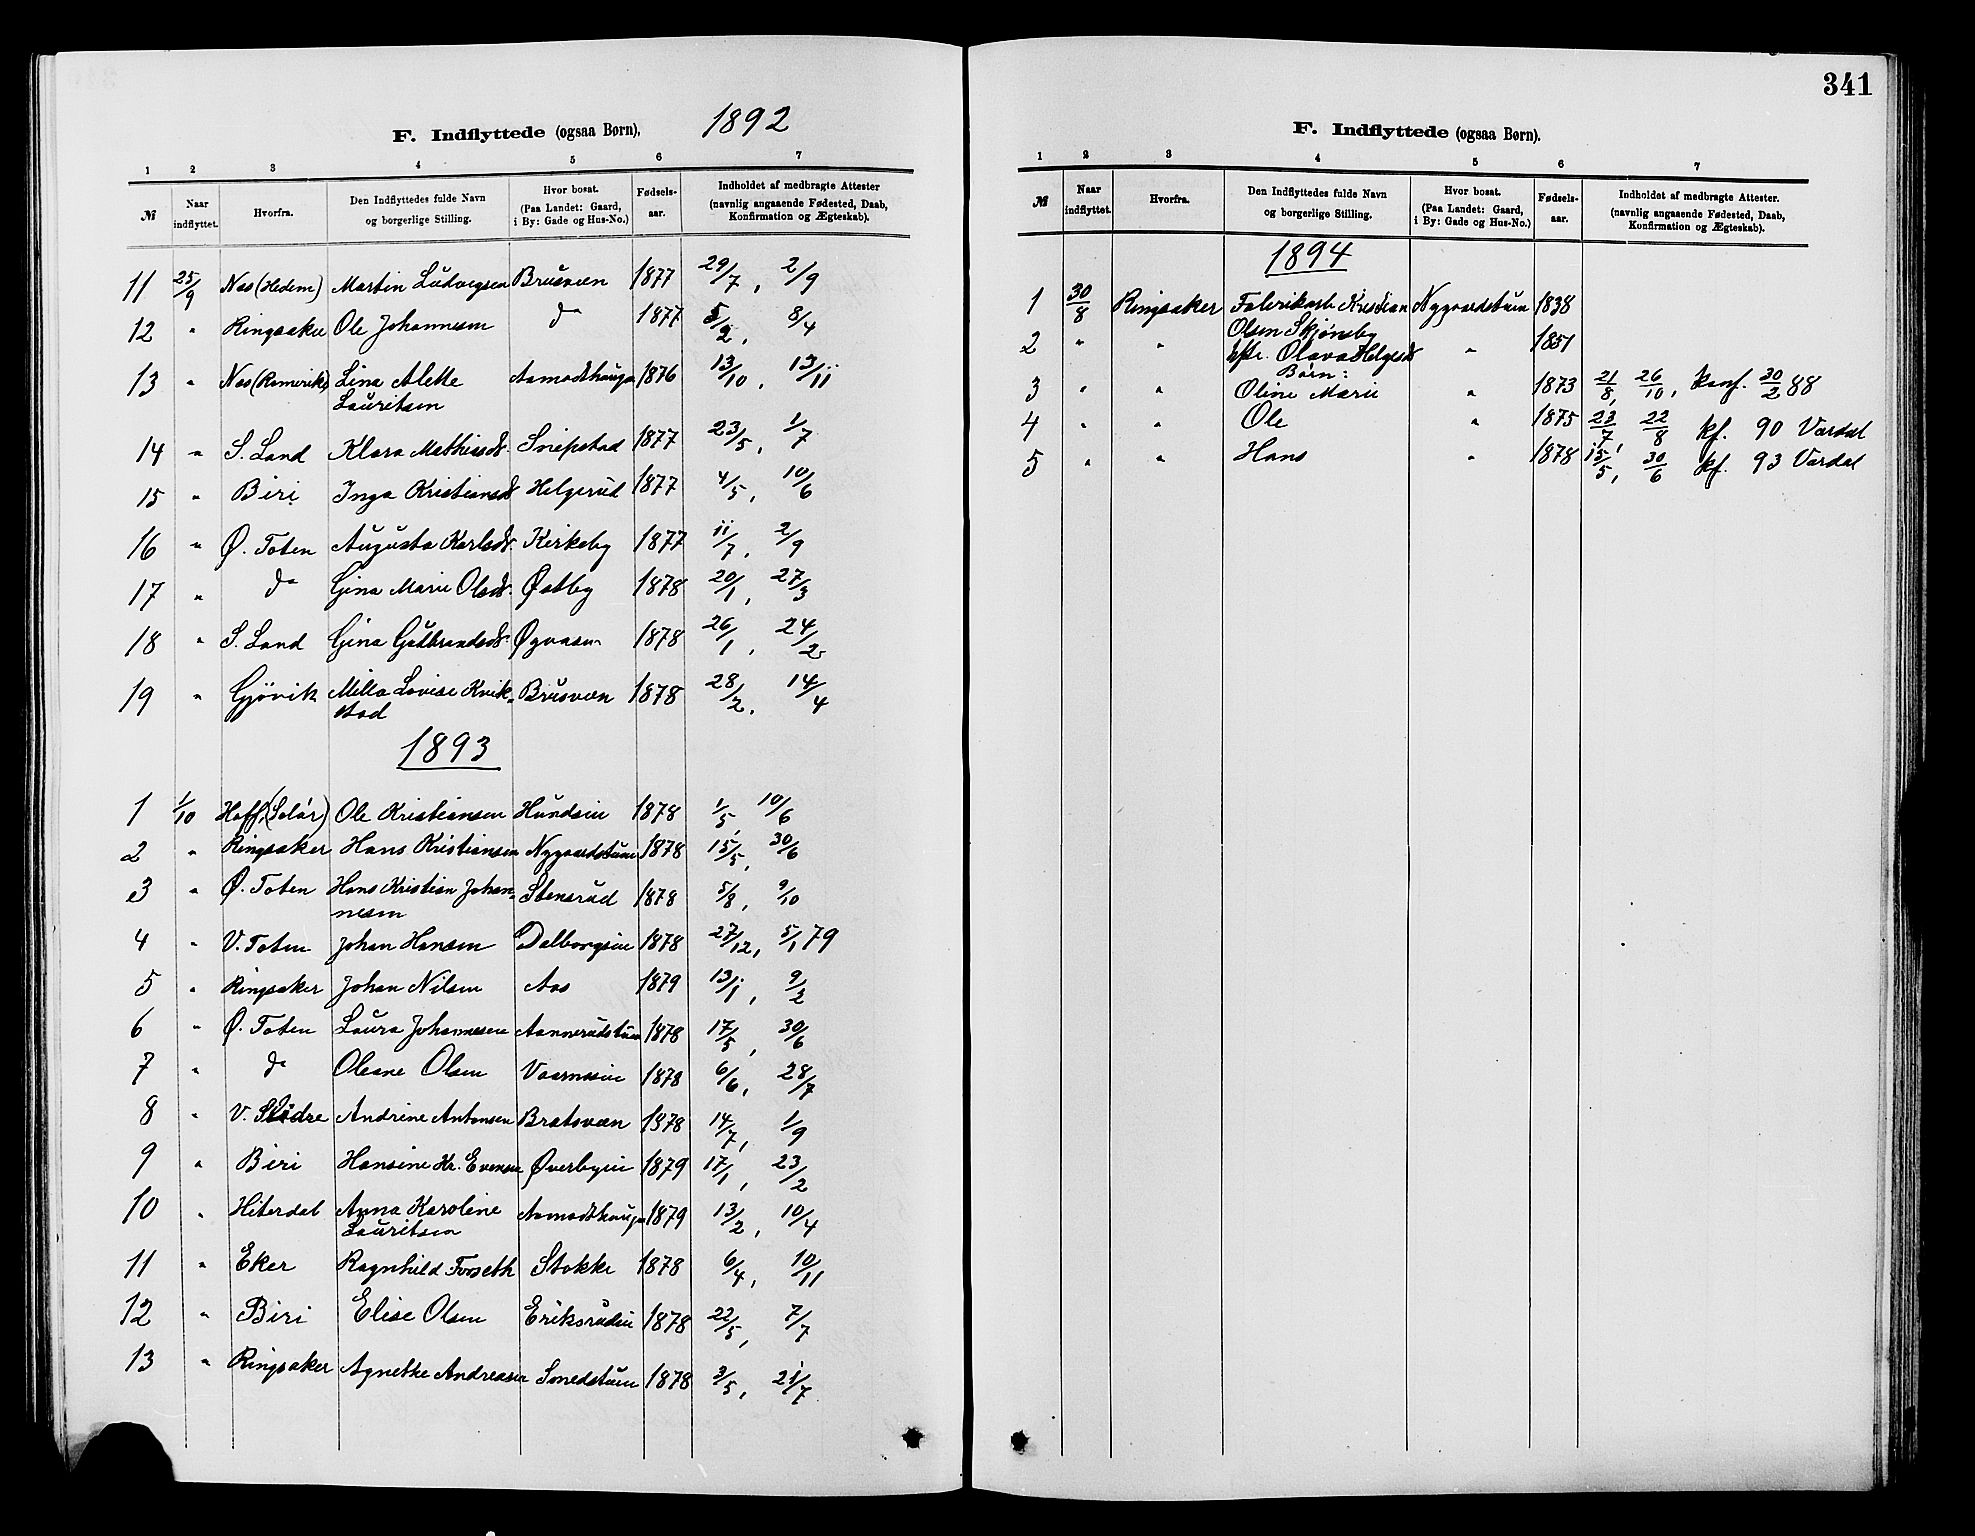 F. Indflyttede (ogsaa Børn), 1892
1 2 3 4 5 6 7
№ Naar indflyttet. Hvorfra. Den Indflyttedes fulde Navn og borgerlige Stilling. Hvor bosat. (Paa Landet: Gaard, i By: Gade og Hus-No.) Fødsels-aar. Indholdet af medbragte Attester (navnlig angaaende Fødested, Daab, Konfirmation og Ægteskab).
11 25/9 Nes (Hedem) Martin Ludvigsen Brusveen 1877 29/7, 2/9
12 " Ringsaker Ole Johannesen do 1877 5/2, 8/4
13 " Nes (Romerike) Lina Alette Aamodthaugen 1876 13/10, 13/11
Lauritsen
14 " S. Land Klara Mathiasd. Sniepstad 1877 23/5, 1/7
15 " Biri Inga Kristiansd. Helgerud 1877 4/5, 10/6
16 " Ø. Toten Augusta Karlsd. Kirkeby 1877 11/7, 2/9
17 " do Gina Marie Olsd. Østby 1878 20/1, 27/3
18 " S. Land Gina Gulbrandsd. 1878 26/1, 24/2
19 " Gjövik Milla Lovise Kvik- Brusveen 1878 28/2, 14/4
stad
1893
1 1/10 Hoff, (Solør) Ole Kristiansen Hundsei 1878 1/5, 10/6
2 " Ringsaker Hans Kristiansen Nygaardstuen 1878 15/5, 30/6
3 " Ø. Toten Hans Kristian Johan- Stensrud 1878 5/8, 9/10
nesen
4 " V. Toten Johan Hansen Dalborgeie 1878 27/12, 5/1 79
5 " Ringsaker Johan Nilsen Aas 1879 13/1, 9/2
6 " Ø. Toten Laura Johannesen Aannerudstuen 1878 17/5, 30/6
7 " do Oleane Olsen 1878 6/6, 28/7
8 " V. Slidre Andrine Antonsen Bratsveen 1878 14/7, 1/9
9 " Biri Hansine Kr. Evensen Øverbyeie 1879 17/1, 23/2
10 " Hiterdal Anna Karoline Aamodthaugen 1879 13/2, 10/4
Lauritsen
11 " Eker Ragnhild Forseth Stokke 1878 6/4, 10/11
12 " Biri Elise Olsen Eriksrudeie 1878 22/5, 7/7
13 " Ringsaker Agnethe Andreasen Smedstuen 1878 3/5, 21/7
341
F. Indflyttede (ogsaa Børn).
1 2 3 4 5 6 7
№ Naar indflyttet. Hvorfra. Den Indflyttedes fulde Navn og borgerlige Stilling. Hvor bosat. (Paa Landet: Gaard, i By: Gade og Hus-No.) Fødsels-aar. Indholdet af medbragte Attester. (navnlig angaaende Fødested, Daab, Konfirmation og Ægteskab).
1894
1 30/8 Ringsaker Fabrikarb. Kristian Nygaardstuen 1838
Olsen Skjønsby
2 " " Olava Helgesd. " 1851
Børn:
3 " " Oline Marie " 1873 21/8, 26/10, konf. 30/2 88
4 " " Ole " 1875 23/7, 22/8 kf. 90 Vardal
5 " " Hans " 1878 15/5, 30/6 kf. 93 Vardal